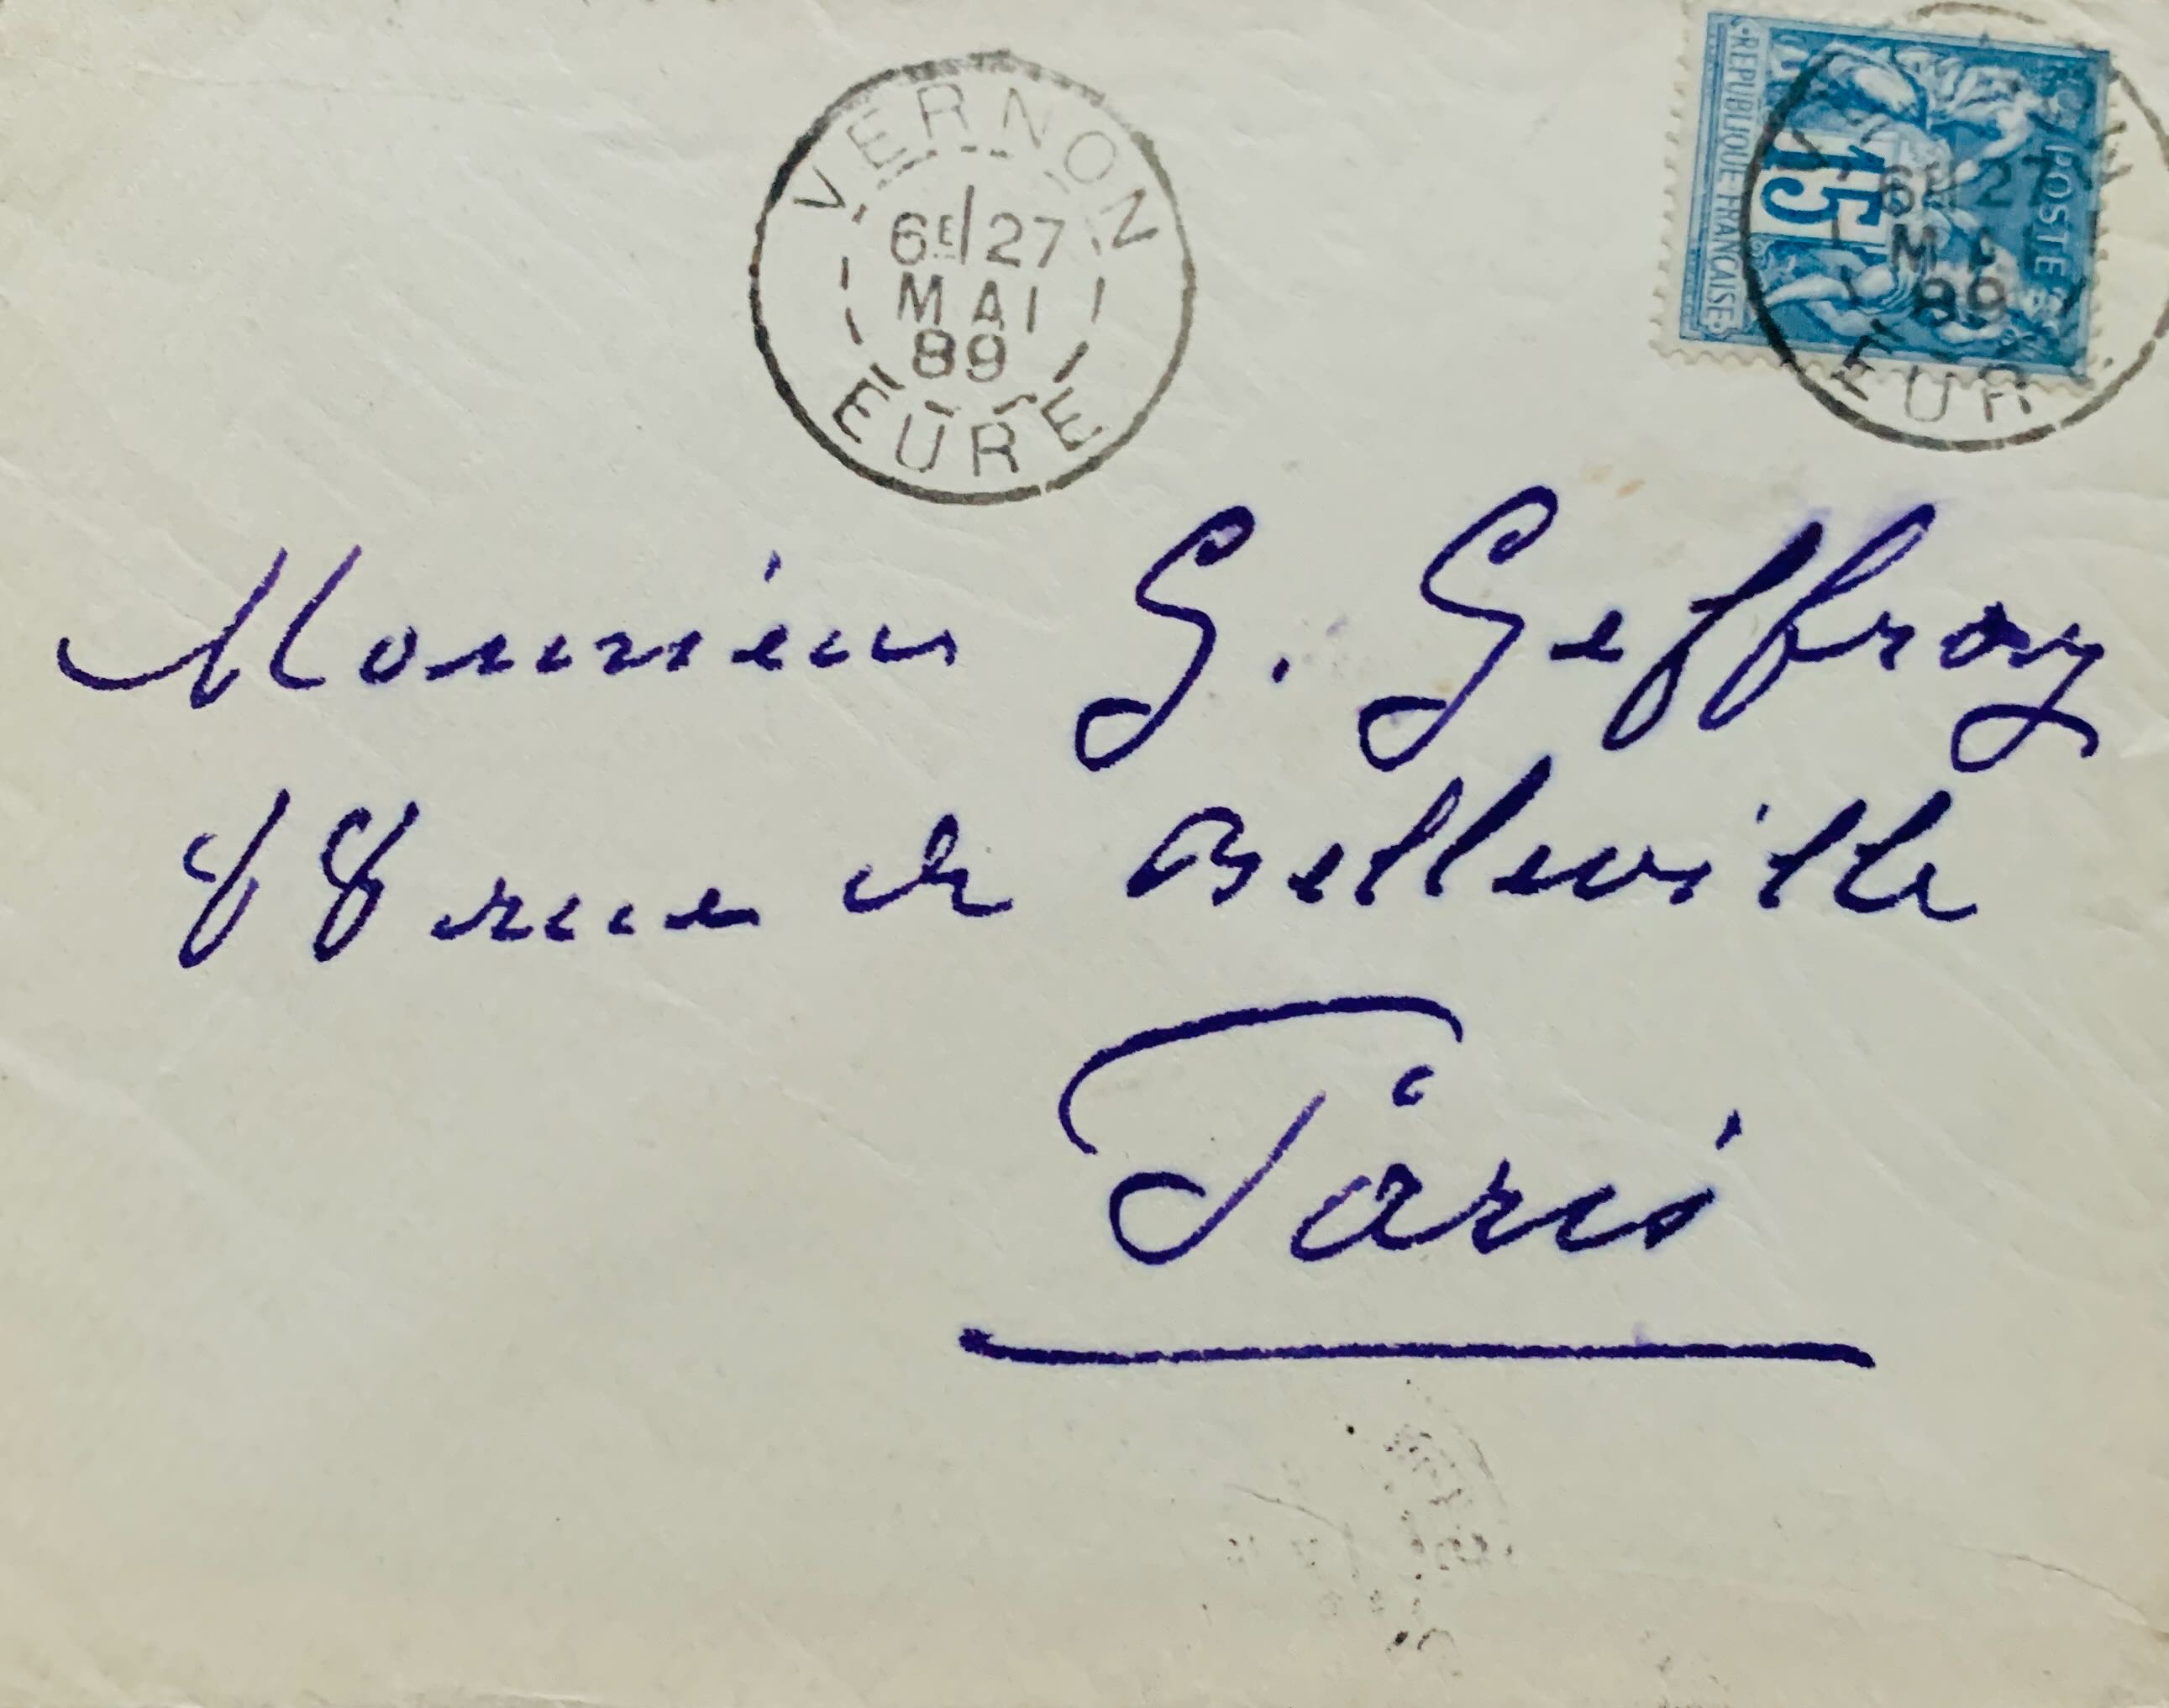 VERNON
6E 27
MAI
89
EURE
REPUBLIQUE FRANCAISE
15
POSTES
6E 27
MAI
89
EUR
Monsieur G. Geffroy
88 rue de Belleville
Paris